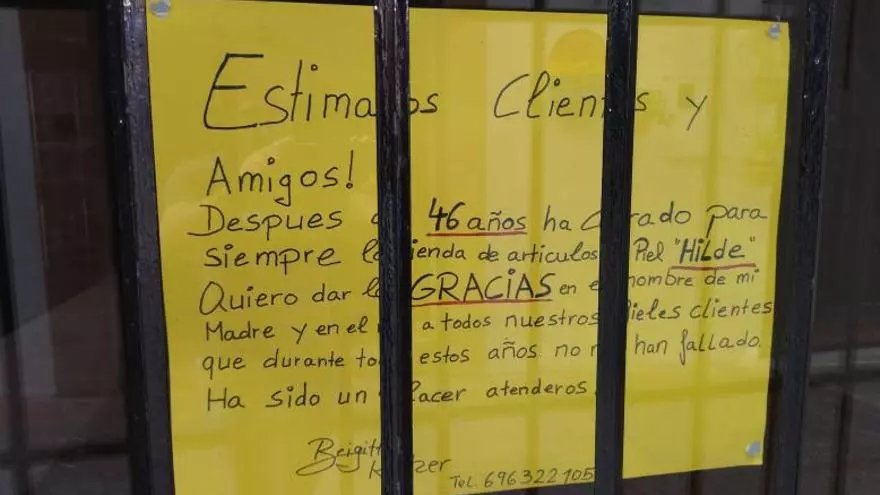 Estimados Clientes y
Amigos!
Despues de 46 años ha cerrado para
siempre la tienda de articulos Piel "HiLde"
Quiero dar las GRACIAS en el nombre de mi
Madre y en el a todos nuestros fieles clientes
que durante todos estos años no nos han fallado.
Ha sido un placer atenderos.
Brigitte
Tel. 696322105